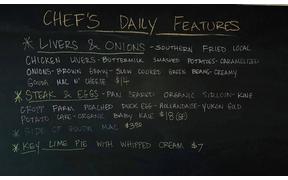 CHEF'S DAILY FEATURES
* LIVERS & ONIONS - SOUTHERN FRIED LOCAL
CHICKEN LIVERS - BUTTERMILK SMASHED POTATOES - CARAMELIZED
ONIONS - BROWN GRAVY - SLOW COOKED GREEN BEANS - CREAMY
GOUDA MAC N' CHEESE $14
* STEAK & EGGS - PAN SEARED ORGANIC SIRLOIN - KING
CROFT FARM POACHED DUCK EGG - HOLLANDAISE - YUKON GOLD
POTATO CAKE - ORGANIC BABY KALE $18 (GF)
* SIDE OF GOUDA MAC $3.50
* KEY LIME PIE WITH WHIPPED CREAM $7